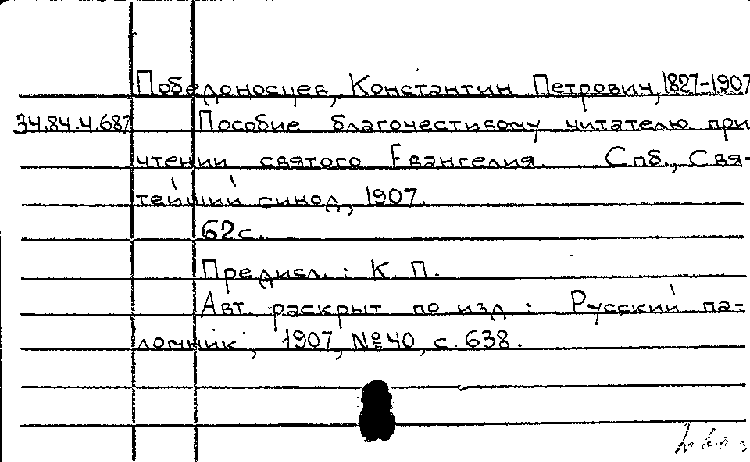 Победоносцев, Константин Петрович, 1827-1907
34.84.4.687 Пособие благочестивому читателю при
чтении святого Евангелия. Спб., Свя-
тейший синод, 1907.
62с.
Предисл.: К. П.
Авт. раскрыт по изд.: Русский па-
ломник, 1907, №40, с. 638.